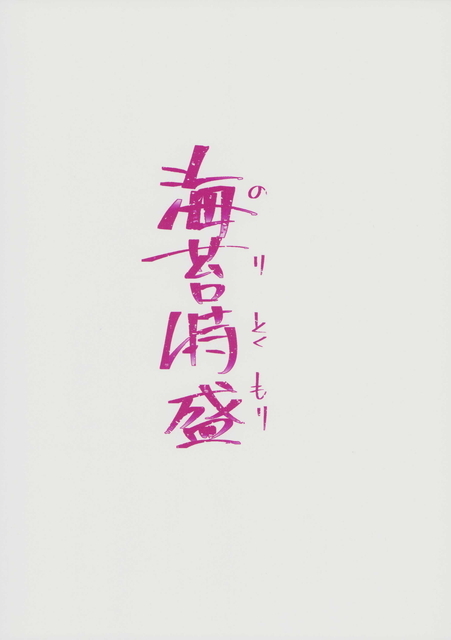 海苔特盛
のりとくもり